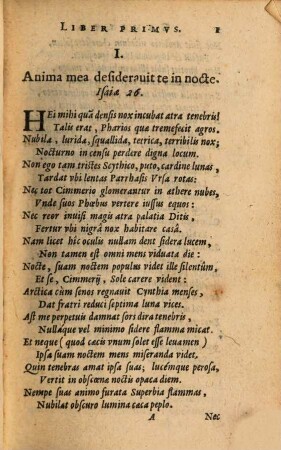 LIBER PRIMVS. 1
I.
Anima mea desiderauit te in nocte.
Isaiæ 26.
HEi mihi quã densis nox incubat atra tenebris!
Talis erat, Pharios quæ tremefecit agros.
Nubila, lurida, squallida, tetrica, terribilis nox;
Nocturno in censu perdere digna locum.
Non ego tam tristes Scythico, puto, cardine lunas,
Tardat vbi lentas Parrhasis Vrsa rotas:
Nec tot Cimmerio glomerantur in æthere nubes,
Vnde suos Phœbus vertere iussus equos:
Nec reor inuisi magis atra palatia Ditis,
Fertur vbi nigrâ nox habitare casâ.
Nam licet hic oculis nullam dent sidera lucem,
Non tamen est omni mens viduata die:
Nocte, suam noctem populus videt ille silentûm,
Et se, Cimmerij, Sole carere vident:
Arctica cùm senos regnauit Cynthia menses,
Dat fratri reduci septima luna vices.
Ast me perpetuis damnat sors dira tenebris,
Nullaque vel minimo sidere flamma micat.
Et neque (quod cæcis vnum solet esse leuamen)
Ipsa suam noctem mens miseranda videt,
Quin tenebras amat ipsa suas; lucémque perosa,
Vertit in obscœnæ noctis opaca diem.
Nempe suas animo furata Superbia flammas,
Nubilat obscuro lumina cæca peplo.
A Nec